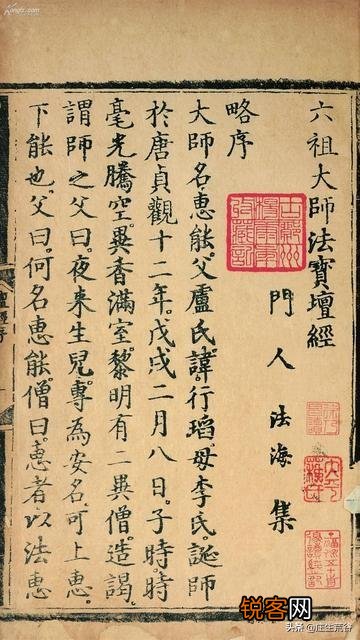 六祖大師法寶壇經
門人 法海 集
略序
大師名惠能。父盧氏。諱行瑫。母李氏。誕師
於唐貞觀十二年。戊戌二月八日。子時時
毫光騰空。異香滿室。黎明有二異僧。造謁。
謂師之父曰。夜來生兒。專為安名。可上惠。
下能也。父曰。何名惠能。僧曰。惠者以法惠
锐客网
头条 @庄生荒谷